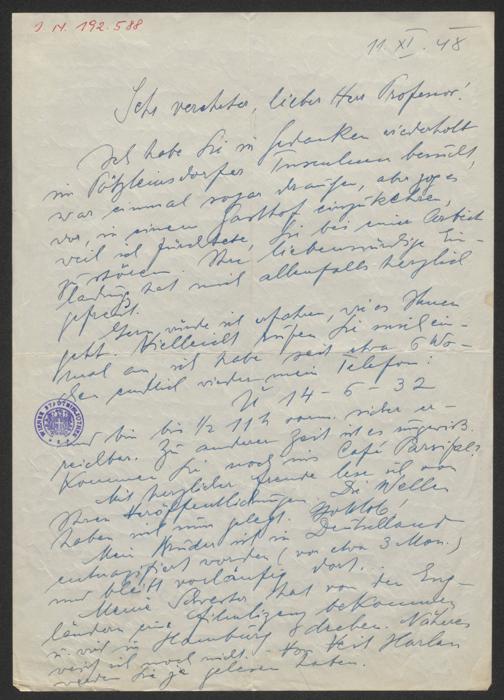 I. N. 192.588
11. XI. 48
Sehr verehrter, lieber Herr Professor!
Ich habe Sie in Gedanken wiederholt
im Pötzleinsdorfer besucht,
war einmal sogar draußen, aber zog es
vor, in einem Gasthof einzukehren,
weil ich fürchtete, Sie bei einer Arbeit
zu stören. Ihre liebenswürdige Ein-
ladung hat mich allenfalls herzlich
gefreut.
Gern würde ich erfahren, wie es Ihnen
geht. Vielleicht rufen Sie mich ein-
mal an, ich habe seit etwa 6 Wo-
chen endlich wieder mein Telefon:
U 14-6-32
und bin bis ½ 11 h vorm. sicher er-
reichbar. Zu anderen Zeit ist es ungewiß.
Kommen Sie noch ins Café Parsifal?
Mit herzlicher Freude lese ich von
Ihren Veröffentlichungen. Die Wellen
haben sich nun gelegt. Gottlob.
Mein Bruder ist in Deutschland
entnazifiziert worden (vor etwa 3 Mon.)
und bleibt vorläufig dort.
Meine Schwester hat von den Eng-
ländern eine bekommen
u. wird in Hamburg drehen. Näheres
weiß ich noch nicht. Von Veit Harlan
werden Sie ja gelesen haben.
WIENER STADTBIBLIOTHEK